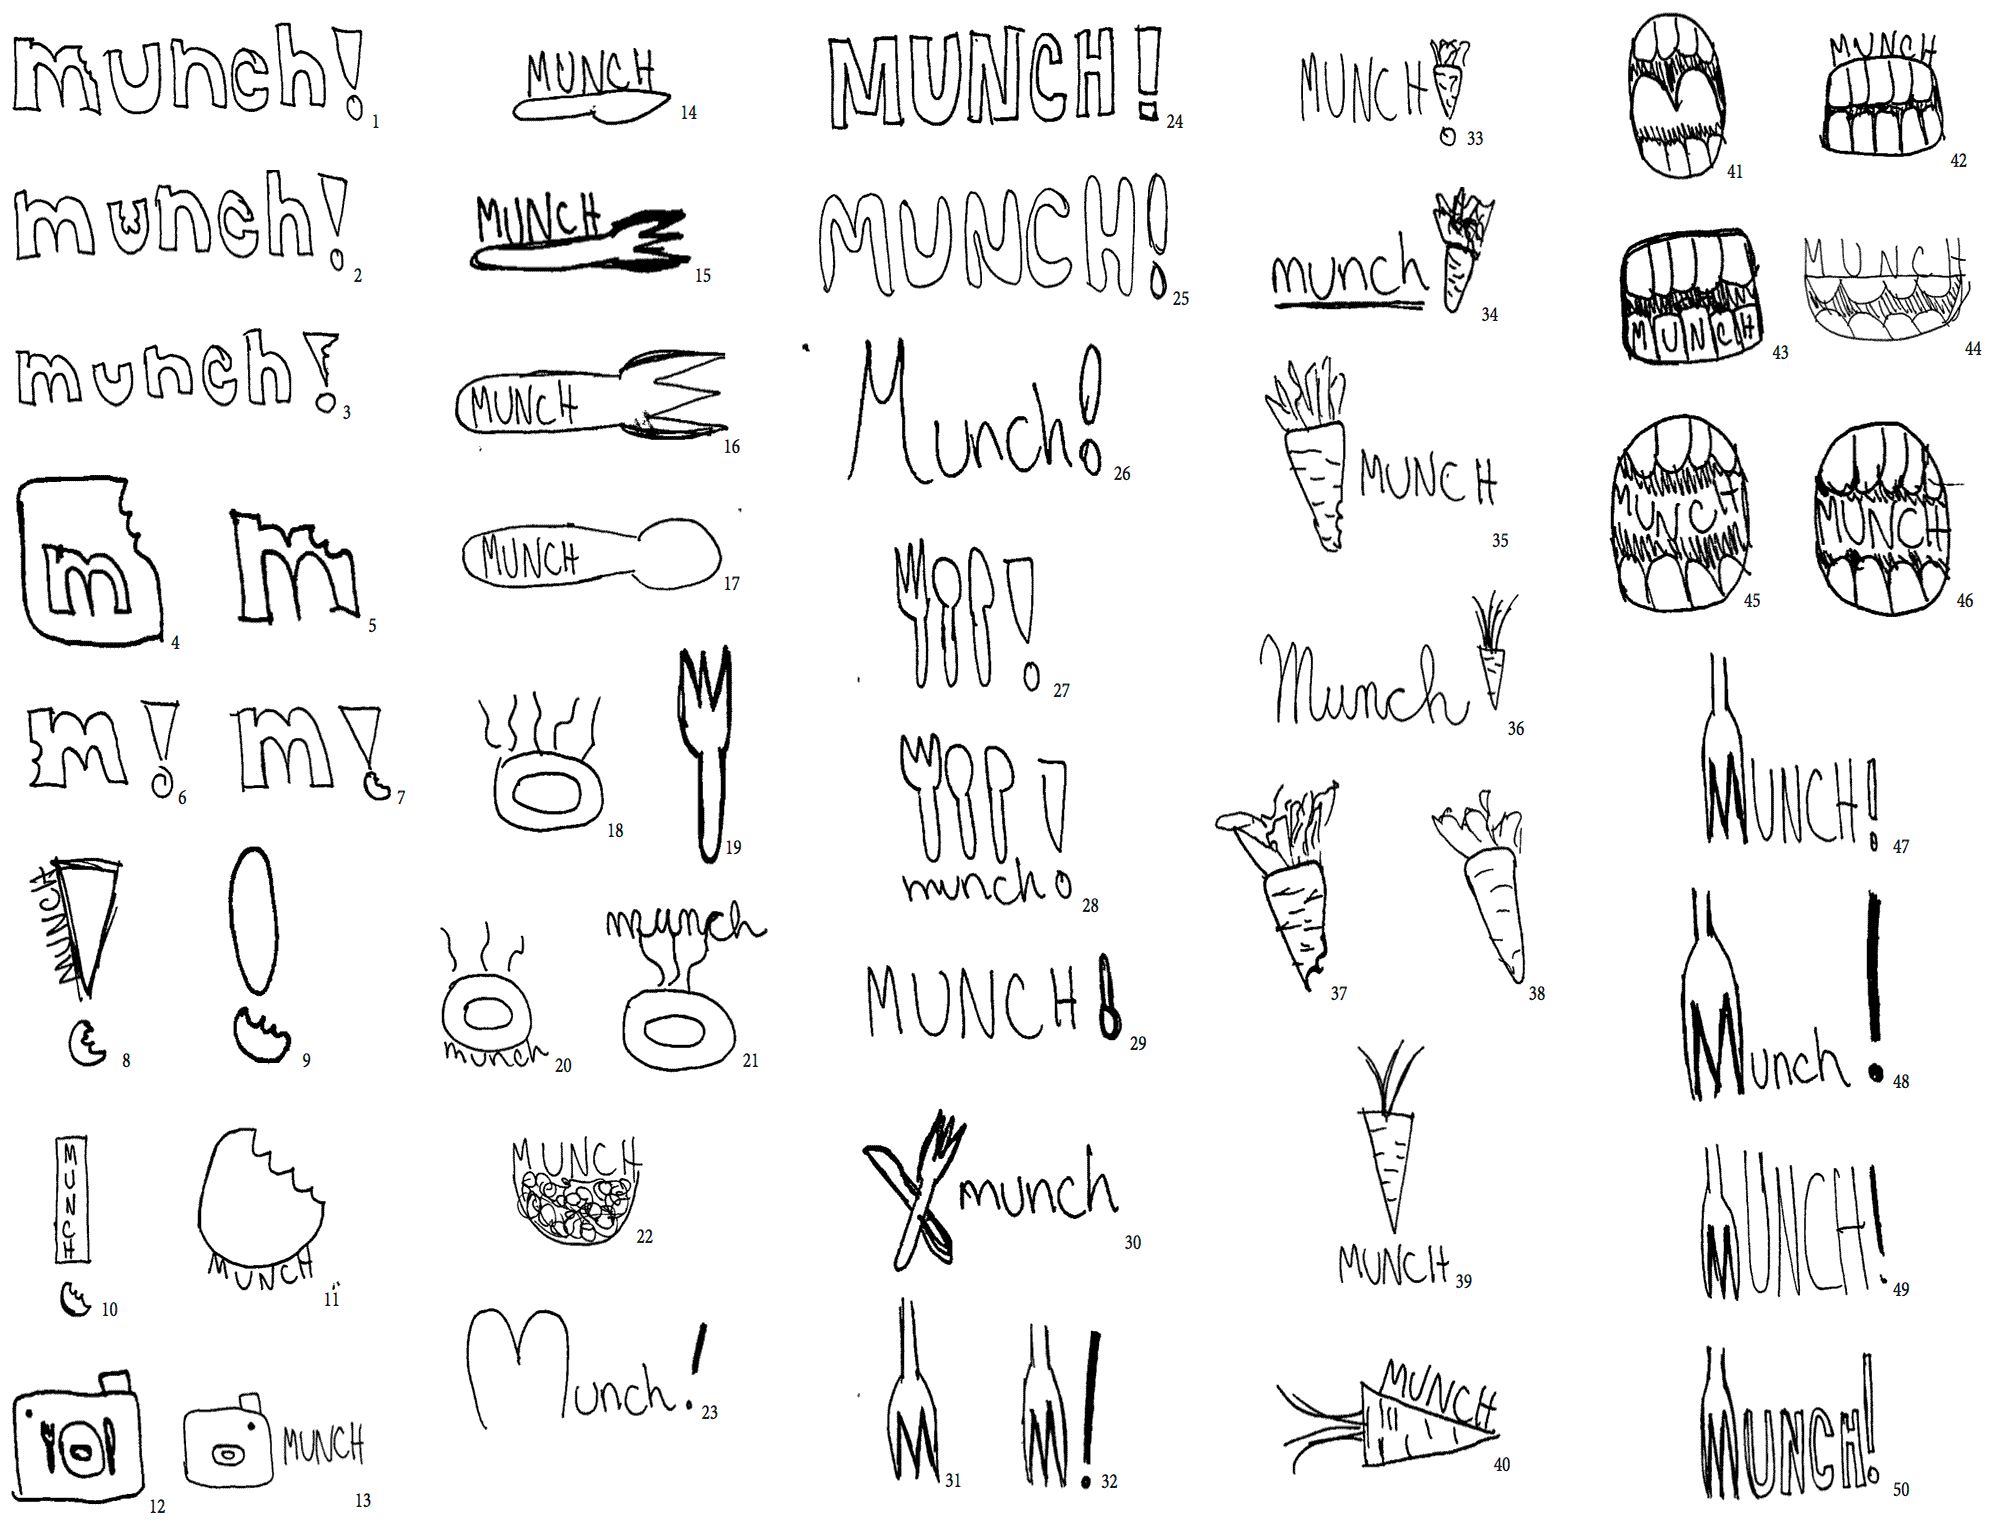 munch!
1
munch!
2
munch!
3
m
4
m
5
m!
6
m!
7
MUNCH
8
9
MUNCH
10
MUNCH
11
12
MUNCH
13
MUNCH
14
MUNCH
15
MUNCH
16
MUNCH
17
18
19
munch
20
munch
21
MUNCH
22
Munch!
23
MUNCH!
24
MUNCH!
25
Munch!
26
!
27
!
munch
28
MUNCH
29
munch
30
M
31
M!
32
MUNCH
33
munch
34
MUNCH
35
Munch
36
37
38
MUNCH
39
MUNCH
40
41
MUNCH
42
MUNCH
43
MUNCH
44
MUNCH
45
MUNCH
46
MUNCH!
47
Munch!
48
MUNCH!
49
MUNCH!
50